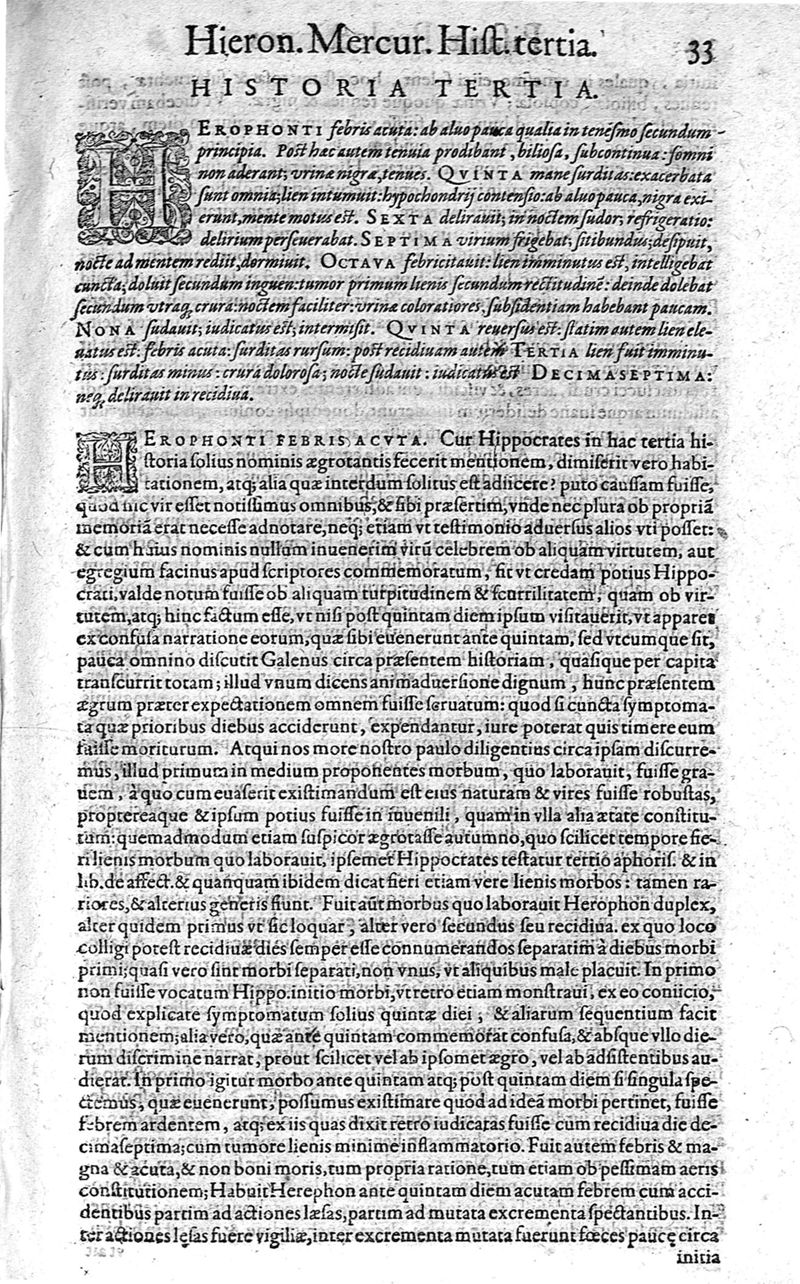 Hieron. Mercur. Hist. tertia. 33
HISTORIA TERTIA.
HEROPHONTI febris acuta: ab aluo pauca qualia in tenesmo secundum
principia. Post hæc autem tenuia prodibant, biliosa, subcontinua: somni
non aderant; vrinæ nigræ, tenues. QVINTA mane surditas: exacerbata
sunt omnia; lien intumuit: hypochondrij contensio: ab aluo pauca, nigra exi-
erunt, mente motus est. SEXTA delirauit; in noctem sudor; refrigeratio:
delirium perseuerabat. SEPTIMA virium frigebat; sitibundus; desipuit,
nocte ad mentem rediit, dormiuit. OCTAVA febricitauit: lien imminutus est, intelligebat
cuncta; doluit secundum inguen: tumor primum lienis secundum rectitudinē: deinde dolebat
secundum vtraq; crura: noctem faciliter: vrinæ coloratiores, subsidentiam habebant paucam.
NONA sudauit; iudicatus est; intermisit. QVINTA reuersus est: statim autem lien ele-
uatus est: febris acuta: surditas rursum: post recidiuam autem TERTIA lien fuit imminu-
tus: surditas minus: crura dolorosa; nocte sudauit: iudicatus est DECIMASEPTIMA:
neq; delirauit in recidiua.
HEROPHONTI FEBRIS ACVTA. Cur Hippocrates in hac tertia hi-
storia solius nominis ægrotantis fecerit mentionem, dimiserit vero habi-
tationem, atq; alia quæ interdum solitus est adiicere? puto caussam fuisse,
quod hic vir esset notissimus omnibus, & sibi præsertim, vnde nec plura ob propriā
memoriā erat necesse adnotare, neq; etiam vt testimonio aduersus alios vti posset:
& cum huius nominis nullum inuenerim virū celebrem ob aliquam virtutem, aut
egregium facinus apud scriptores commemoratum, fit vt credam potius Hippo-
crati, valde notum fuisse ob aliquam turpitudinem & scurrilitatem, quam ob vir-
tutem, atq; hinc factum esse, vt nisi post quintam diem ipsum visitauerit, vt apparet
ex confusa narratione eorum, quæ sibi euenerunt ante quintam, sed vtcumque sit,
pauca omnino discutit Galenus circa præsentem historiam, quasique per capita
transcurrit totam; illud vnum dicens animaduersione dignum, hunc præsentem
ægrum præter expectationem omnem fuisse seruatum: quod si cuncta symptoma-
ta quæ prioribus diebus acciderunt, expendantur, iure poterat quis timere eum
fuisse moriturum. Atqui nos more nostro paulo diligentius circa ipsam discurre-
mus, illud primum in medium proponentes morbum, quo laborauit, fuisse gra-
uem, à quo cum euaserit existimandum est eius naturam & vires fuisse robustas,
proptereaque & ipsum potius fuisse in iuuenili, quam in vlla alia ætate constitu-
tum: quemadmodum etiam suspicor ægrotasse autumno, quo scilicet tempore fie-
ri lienis morbum quo laborauit, ipsemet Hippocrates testatur tertio aphoris. & in
lib. de affect. & quanquam ibidem dicat fieri etiam vere lienis morbos: tamen ra-
riores, & alterius generis fiunt. Fuit aūt morbus quo laborauit Herophon duplex,
alter quidem primus vt sic loquar, alter vero secundus seu recidiua. ex quo loco
colligi potest recidiuæ dies semper esse connumerandos separatim à diebus morbi
primi; quasi vero sint morbi separati, non vnus, vt aliquibus male placuit. In primo
non fuisse vocatum Hippo. initio morbi, vt retro etiam monstraui, ex eo coniicio,
quod explicate symptomatum solius quintæ diei, & aliarum sequentium facit
mentionem; alia vero, quæ ante quintam commemorat confusa, & absque vllo die-
rum discrimine narrat, prout scilicet vel ab ipsomet ægro, vel ab adsistentibus au-
dierat. In primo igitur morbo ante quintam atq; post quintam diem si singula spe-
ctemus, quæ euenerunt, possumus existimare quod ad ideā morbi pertinet, fuisse
febrem ardentem, atq; ex iis quas dixit retro iudicatas fuisse cum recidiua die de-
cimaseptima; cum tumore lienis minime inflammatorio. Fuit autem febris & ma-
gna & acuta, & non boni moris, tum propria ratione, tum etiam ob pessimam aeris
constitutionem; Habuit Herephon ante quintam diem acutam febrem cum acci-
dentibus partim ad actiones læsas, partim ad mutata excrementa spectantibus. In-
ter actiones lęsas fuere vigiliæ, inter excrementa mutata fuerunt fœces paucę circa
initia